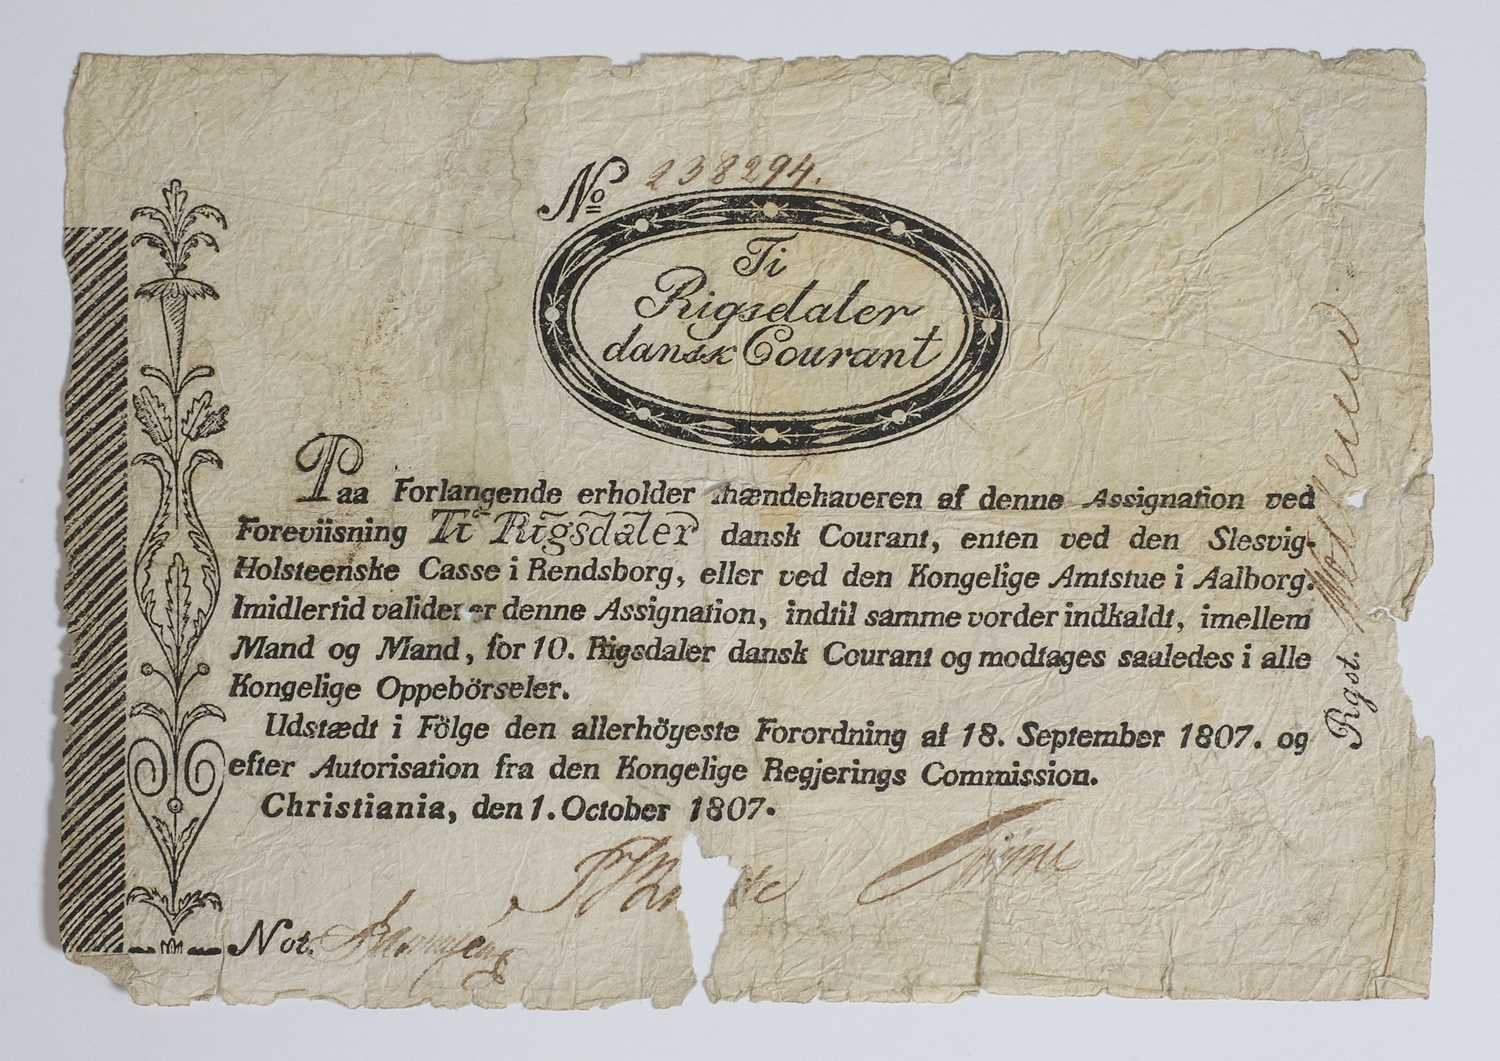 No 238294.
Ti
Rigsdaler
dansk Courant
Paa Forlangende erholder Ihændehaveren af denne Assignation ved
Foreviisning Ti Rigsdaler dansk Courant, enten ved den Slesvig-
Holsteenske Casse i Rendsborg, eller ved den Kongelige Amtstue i Aalborg.
Imidlertid validerer denne Assignation, indtil samme vorder indkaldt, imellem
Mand og Mand, for 10. Rigsdaler dansk Courant og modtages saaledes i alle
Kongelige Oppebörseler.
Udstædt i Fölge den allerhöyeste Forordning af 18. September 1807. og
efter Autorisation fra den Kongelige Regjerings Commission.
Christiania, den 1. October 1807.
Not.
Rgst.